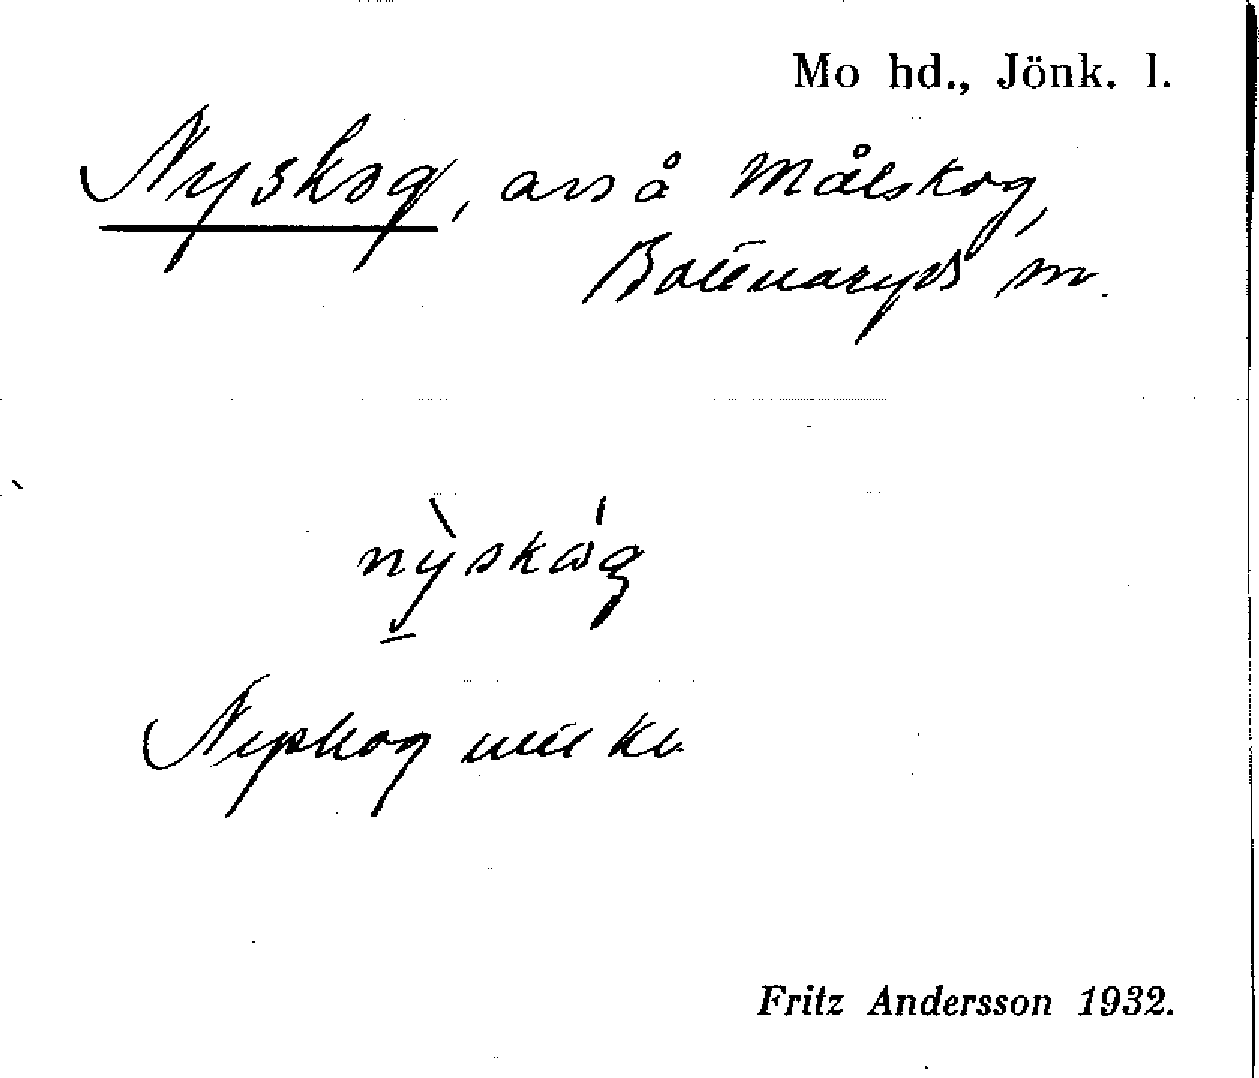 Mo hd., Jönk. l.
Nyskog, avs å Målskog,
Bottnaryds sn.
nỳskɷ́g
Nyskog
Fritz Andersson 1932.